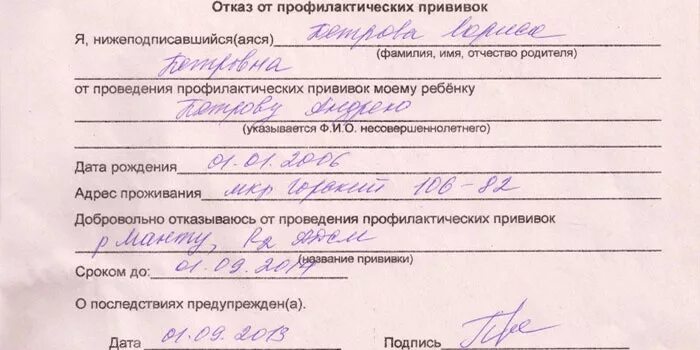 Отказ от профилактических прививок
Я, нижеподписавшийся(аяся) Петрова Лариса
(фамилия, имя, отчество родителя)
Петровна
от проведения профилактических прививок моему ребёнку
Петрову Андрею
(указывается Ф.И.О. несовершеннолетнего)
Дата рождения 01.01.2006
Адрес проживания мкр Горский 106-82
Добровольно отказываюсь от проведения профилактических прививок
р Манту, АДСМ
(название прививки)
Сроком до: 01.09.2014
О последствиях предупрежден(а).
Дата 01.09.2013 Подпись